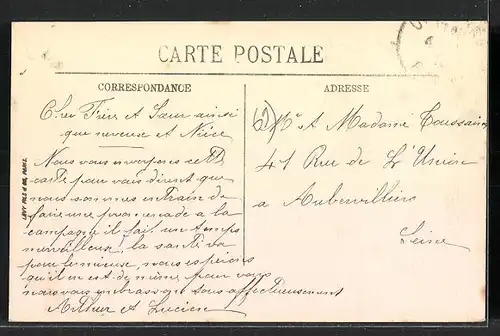 CARTE POSTALE
CORRESPONDANCE
ADRESSE
Cher Frère et Sœur ainsi
que neveuse et Nièce
Nous vous envoyons cette
carte pour vous dirent que
nous sommes en train de
faire une promenade a la
campagne il fait un temps
merveilleux, la santé va
pour le mieux, nous espérons
qu'il en est de même pour vous
nous vous embrassons tous affectueusement
Arthur et Lucien
Mr et Madame Toussaint
41 Rue de L'Union
a Aubervilliers
Seine
LEVY FILS & Cie, PARIS.